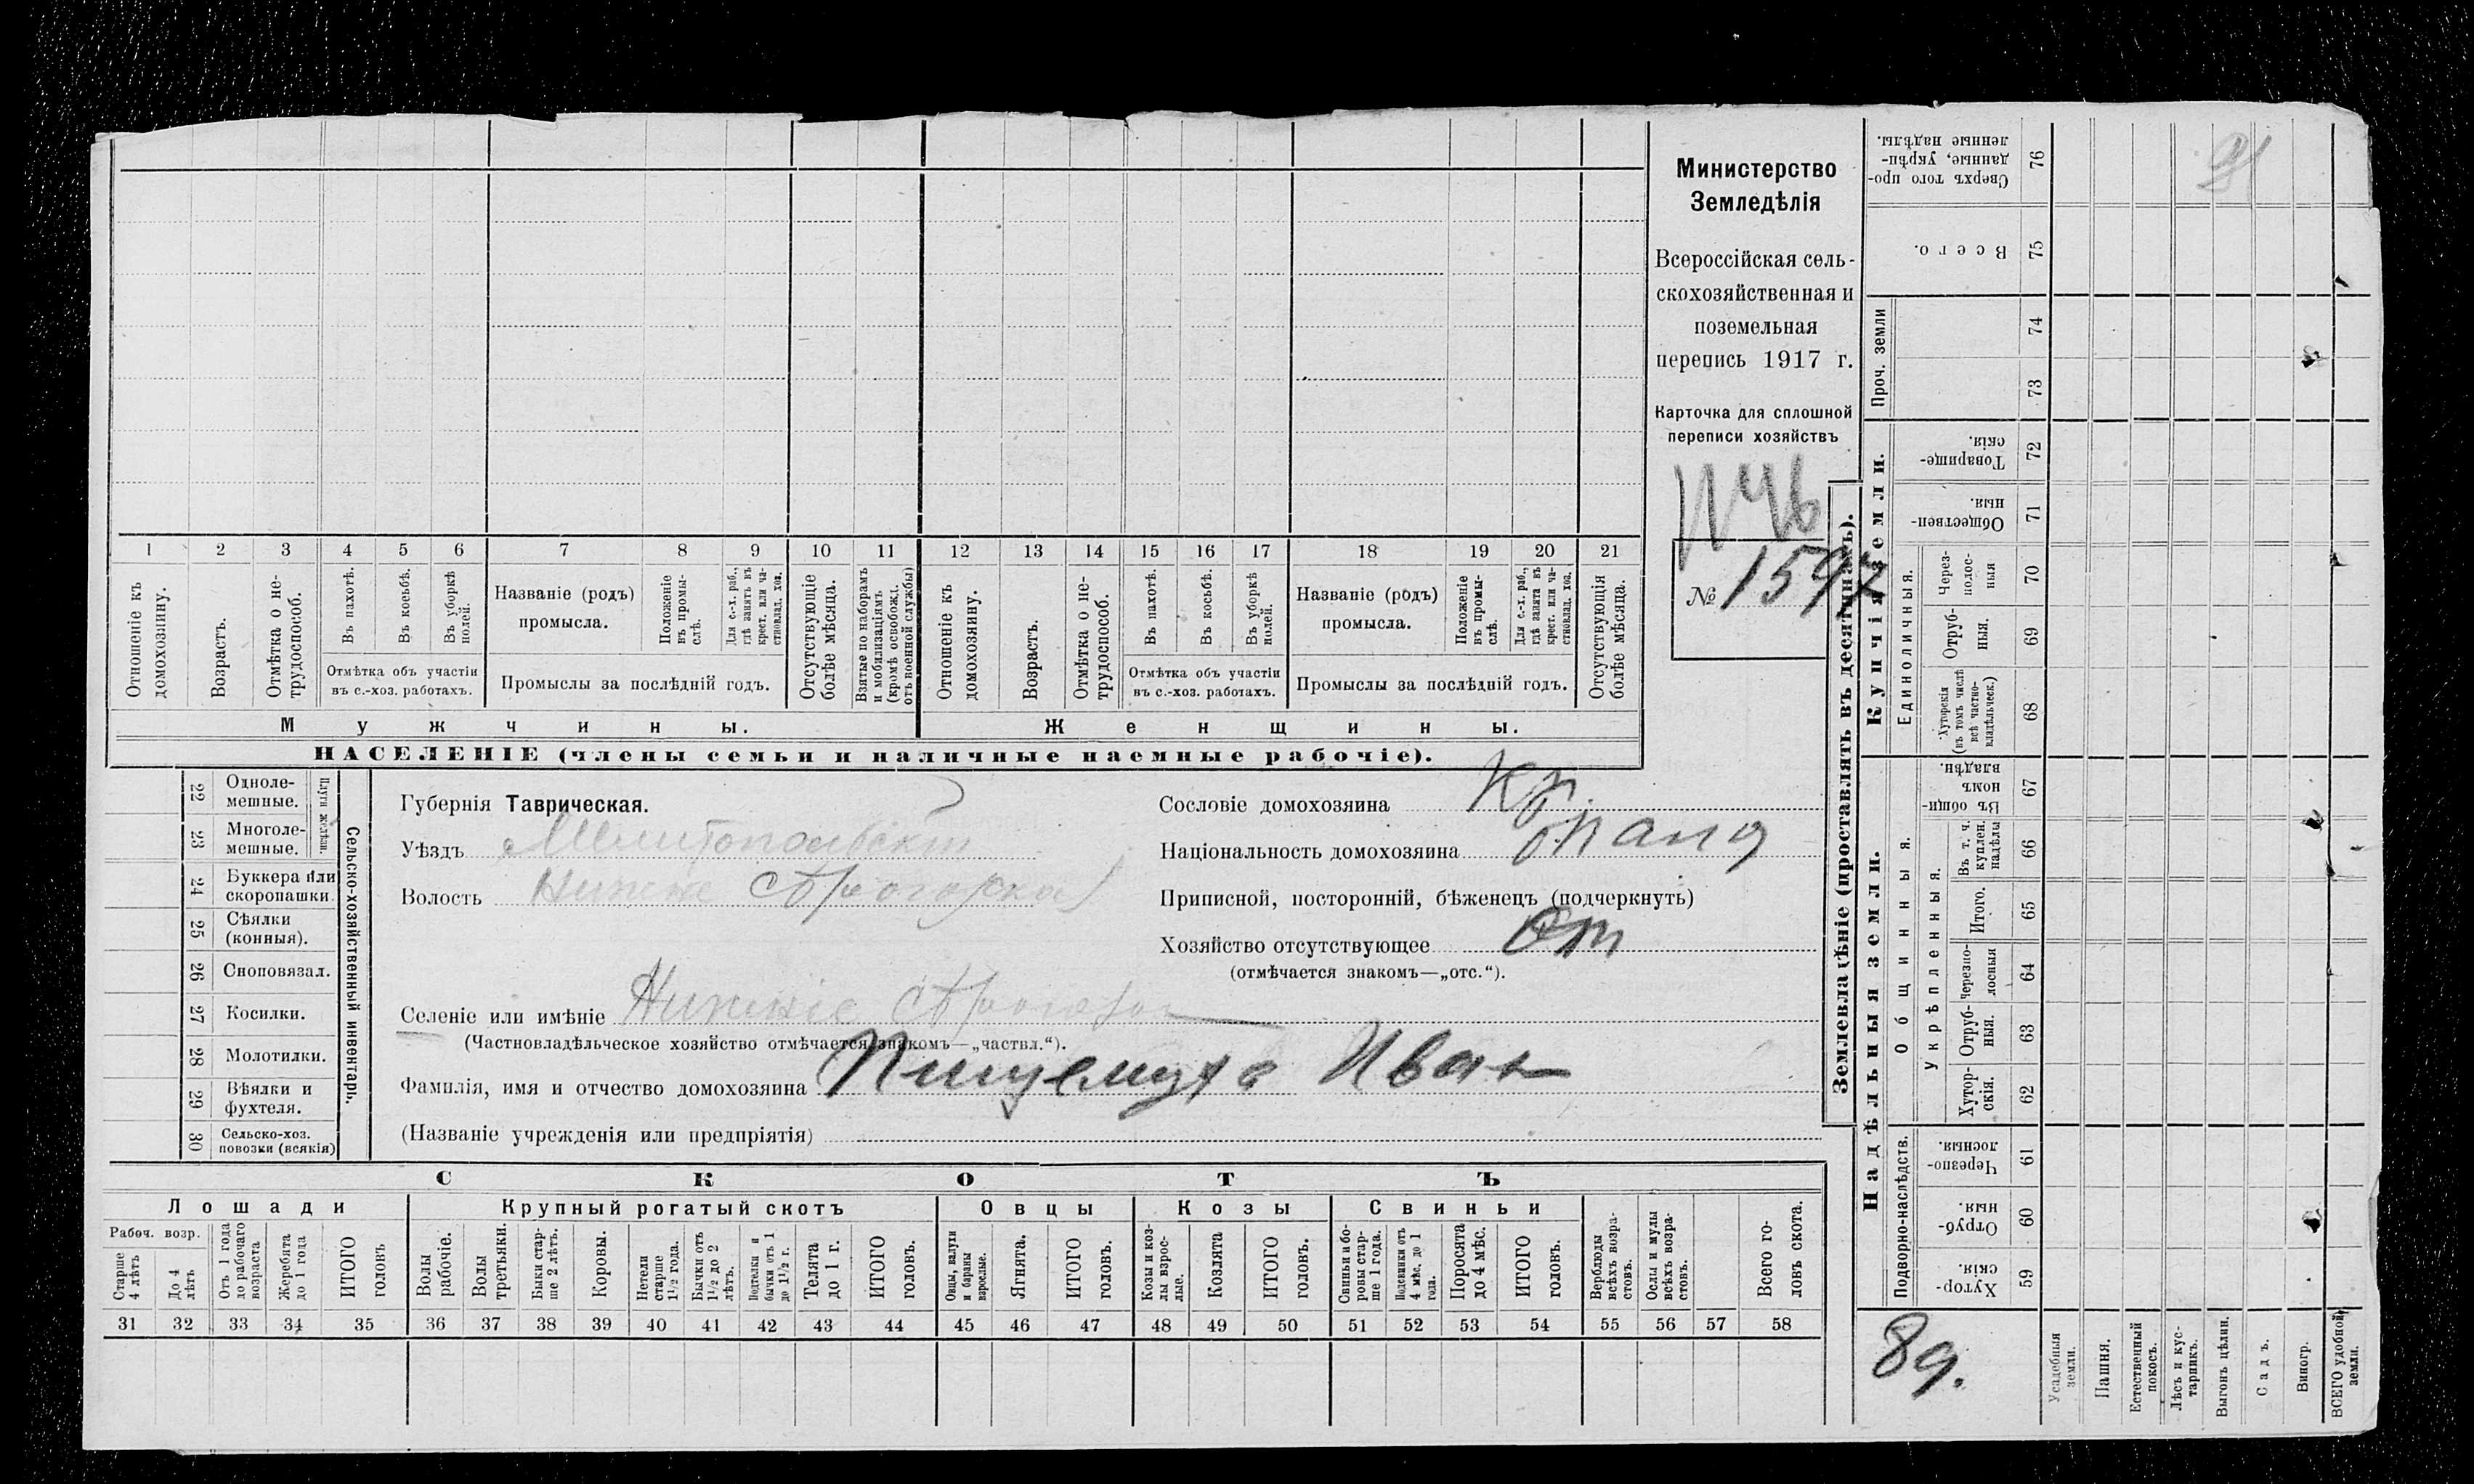 1 2 3 4 5 6 7 8 9 10 11 12 13 14 15 16 17 18 19 20 21
Отношеніе къ домохозяину.
Возрастъ.
Отмѣтка о не-
трудоспособ.
Въ пахотѣ.
Въ косьбѣ.
Въ уборкѣ
полей.
Отмѣтка объ участіи
въ с.-хоз. работахъ.
Названіе (родъ)
промысла.
Положеніе
въ промы-
слѣ.
Для с.-х. раб.,
гдѣ занятъ въ
крест. или ча-
стновлад. хоз.
Промыслы за послѣдній годъ.
Отсутствующіе
болѣе мѣсяца.
Взятые по наборамъ
и мобилизаціямъ
(кромѣ освобожд.
отъ военной службы)
Отношеніе къ
домохозяину.
Возрастъ.
Отмѣтка о не-
трудоспособ.
Въ пахотѣ.
Въ косьбѣ.
Въ уборкѣ
полей.
Отмѣтка объ участіи
въ с.-хоз. работахъ.
Названіе (родъ)
промысла.
Положеніе
въ промы-
слѣ.
Для с.-х. раб.,
гдѣ занята въ
крест. или ча-
стновлад. хоз.
Промыслы за послѣдній годъ.
Отсутствующія
болѣе мѣсяца.
Мужчины.
Женщины.
НАСЕЛЕНІЕ (члены семьи и наличные наемные рабочіе).
Министерство
Земледѣлія
Всероссійская сель-
скохозяйственная и
поземельная
перепись 1917 г.
Карточка для сплошной
переписи хозяйствъ
№ 1597
22 Одноле-
мешные.
23 Многоле-
мешные.
Плуги желѣзн.
24 Буккера или
скоропашки.
25 Сѣялки
(конныя).
26 Сноповязал.
27 Косилки.
28 Молотилки.
29 Вѣялки и
фухтеля.
30 Сельско-хоз.
повозки (всякія)
Сельско-хозяйственный инвентарь.
Губернія Таврическая.
Уѣздъ Мелитопольскій
Волость Нижне Сѣрогозская
Селеніе или имѣніе Нижніе Сѣрогозы
(Частновладѣльческое хозяйство отмѣчается знакомъ—„частвл.“).
Фамилія, имя и отчество домохозяина Пищемуха Иван
(Названіе учрежденія или предпріятія)
Сословіе домохозяина Кр.
Національность домохозяина
Приписной, посторонній, бѣженецъ (подчеркнуть)
Хозяйство отсутствующее От
(отмѣчается знакомъ—„отс.“).
СКОТЪ
Лошади
Крупный рогатый скотъ
Овцы
Козы
Свиньи
Рабоч. возр.
Старше
4 лѣтъ
До 4
лѣтъ
Отъ 1 года
до рабочаго
возраста
Жеребята
до 1 года
ИТОГО
головъ
Волы
рабочіе.
Волы
третьяки.
Быки стар-
ше 2 лѣтъ.
Коровы.
Нетели
старше
1½ года.
Бычки отъ
1½ до 2
лѣтъ.
Подтелки и
бычки отъ 1
до 1½ г.
Телята
до 1 г.
ИТОГО
головъ.
Овцы, валухи
и бараны
взрослые.
Ягнята.
ИТОГО
головъ.
Козы и коз-
лы взрос-
лые.
Козлята
ИТОГО
головъ.
Свиньи и бо-
ровы стар-
ше 1 года.
Подсвинки отъ
4 мѣс. до 1
года.
Поросята
до 4 мѣс.
ИТОГО
головъ.
Верблюды
всѣхъ возра-
стовъ.
Ослы и мулы
всѣхъ возра-
стовъ.
Всего го-
ловъ скота.
31 32 33 34 35 36 37 38 39 40 41 42 43 44 45 46 47 48 49 50 51 52 53 54 55 56 57 58
Землевладѣніе (проставлять въ десятинахъ).
Купчія земли.
Надѣльныя земли.
Сверхъ того про-
данные, укрѣп-
ленные надѣлы.
76
Всего.
75
Проч. земли
74
73
Товарище-
скія.
72
Обществен-
ныя.
71
Единоличныя.
Через-
полос-
ныя
70
Отруб-
ныя.
69
Хуторскія
(въ томъ числѣ
всѣ частно-
владѣльческ.)
68
Общинныя.
Въ общин-
номъ
владѣн.
67
Укрѣпленныя.
Въ т. ч.
куплен.
надѣлы
66
Итого.
65
Черезпо-
лосныя
64
Отруб-
ныя.
63
Хутор-
скія.
62
Подворно-наслѣдств.
Черезпо-
лосныя.
61
Отруб-
ныя.
60
Хутор-
скія.
59
89.
Усадебныя
земли.
Пашня.
Естественный
покосъ.
Лѣсъ и кус-
тарникъ.
Выгонъ цѣлин.
Садъ.
Виногр.
ВСЕГО удобной
земли.